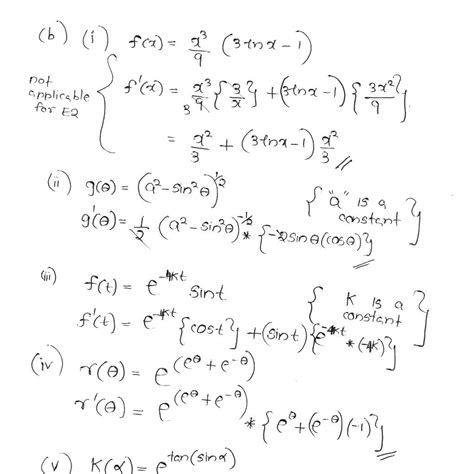 (b) (i) f(x) = x³/9 (3 ln x − 1)
not applicable for E2
f'(x) = x³/9 {3/x} + (3 ln x − 1) {3x²/9}
3
= x²/3 + (3 ln x − 1) x²/3 //
(ii) g(θ) = (a² − sin²θ)^½ {"a" is a constant}
g'(θ) = 1/2 (a² − sin²θ)^-½ * {−2 sin θ (cos θ)} //
(iii) f(t) = e^-4kt sin t {K is a constant}
f'(t) = e^-4kt {cos t} + (sin t) {e^-4kt * (-4k)} //
(iv) r(θ) = e^(e^θ + e^-θ)
r'(θ) = e^(e^θ + e^-θ) * {e^θ + (e^-θ)(-1)} //
(v) K(α) = e^tan(sin α)